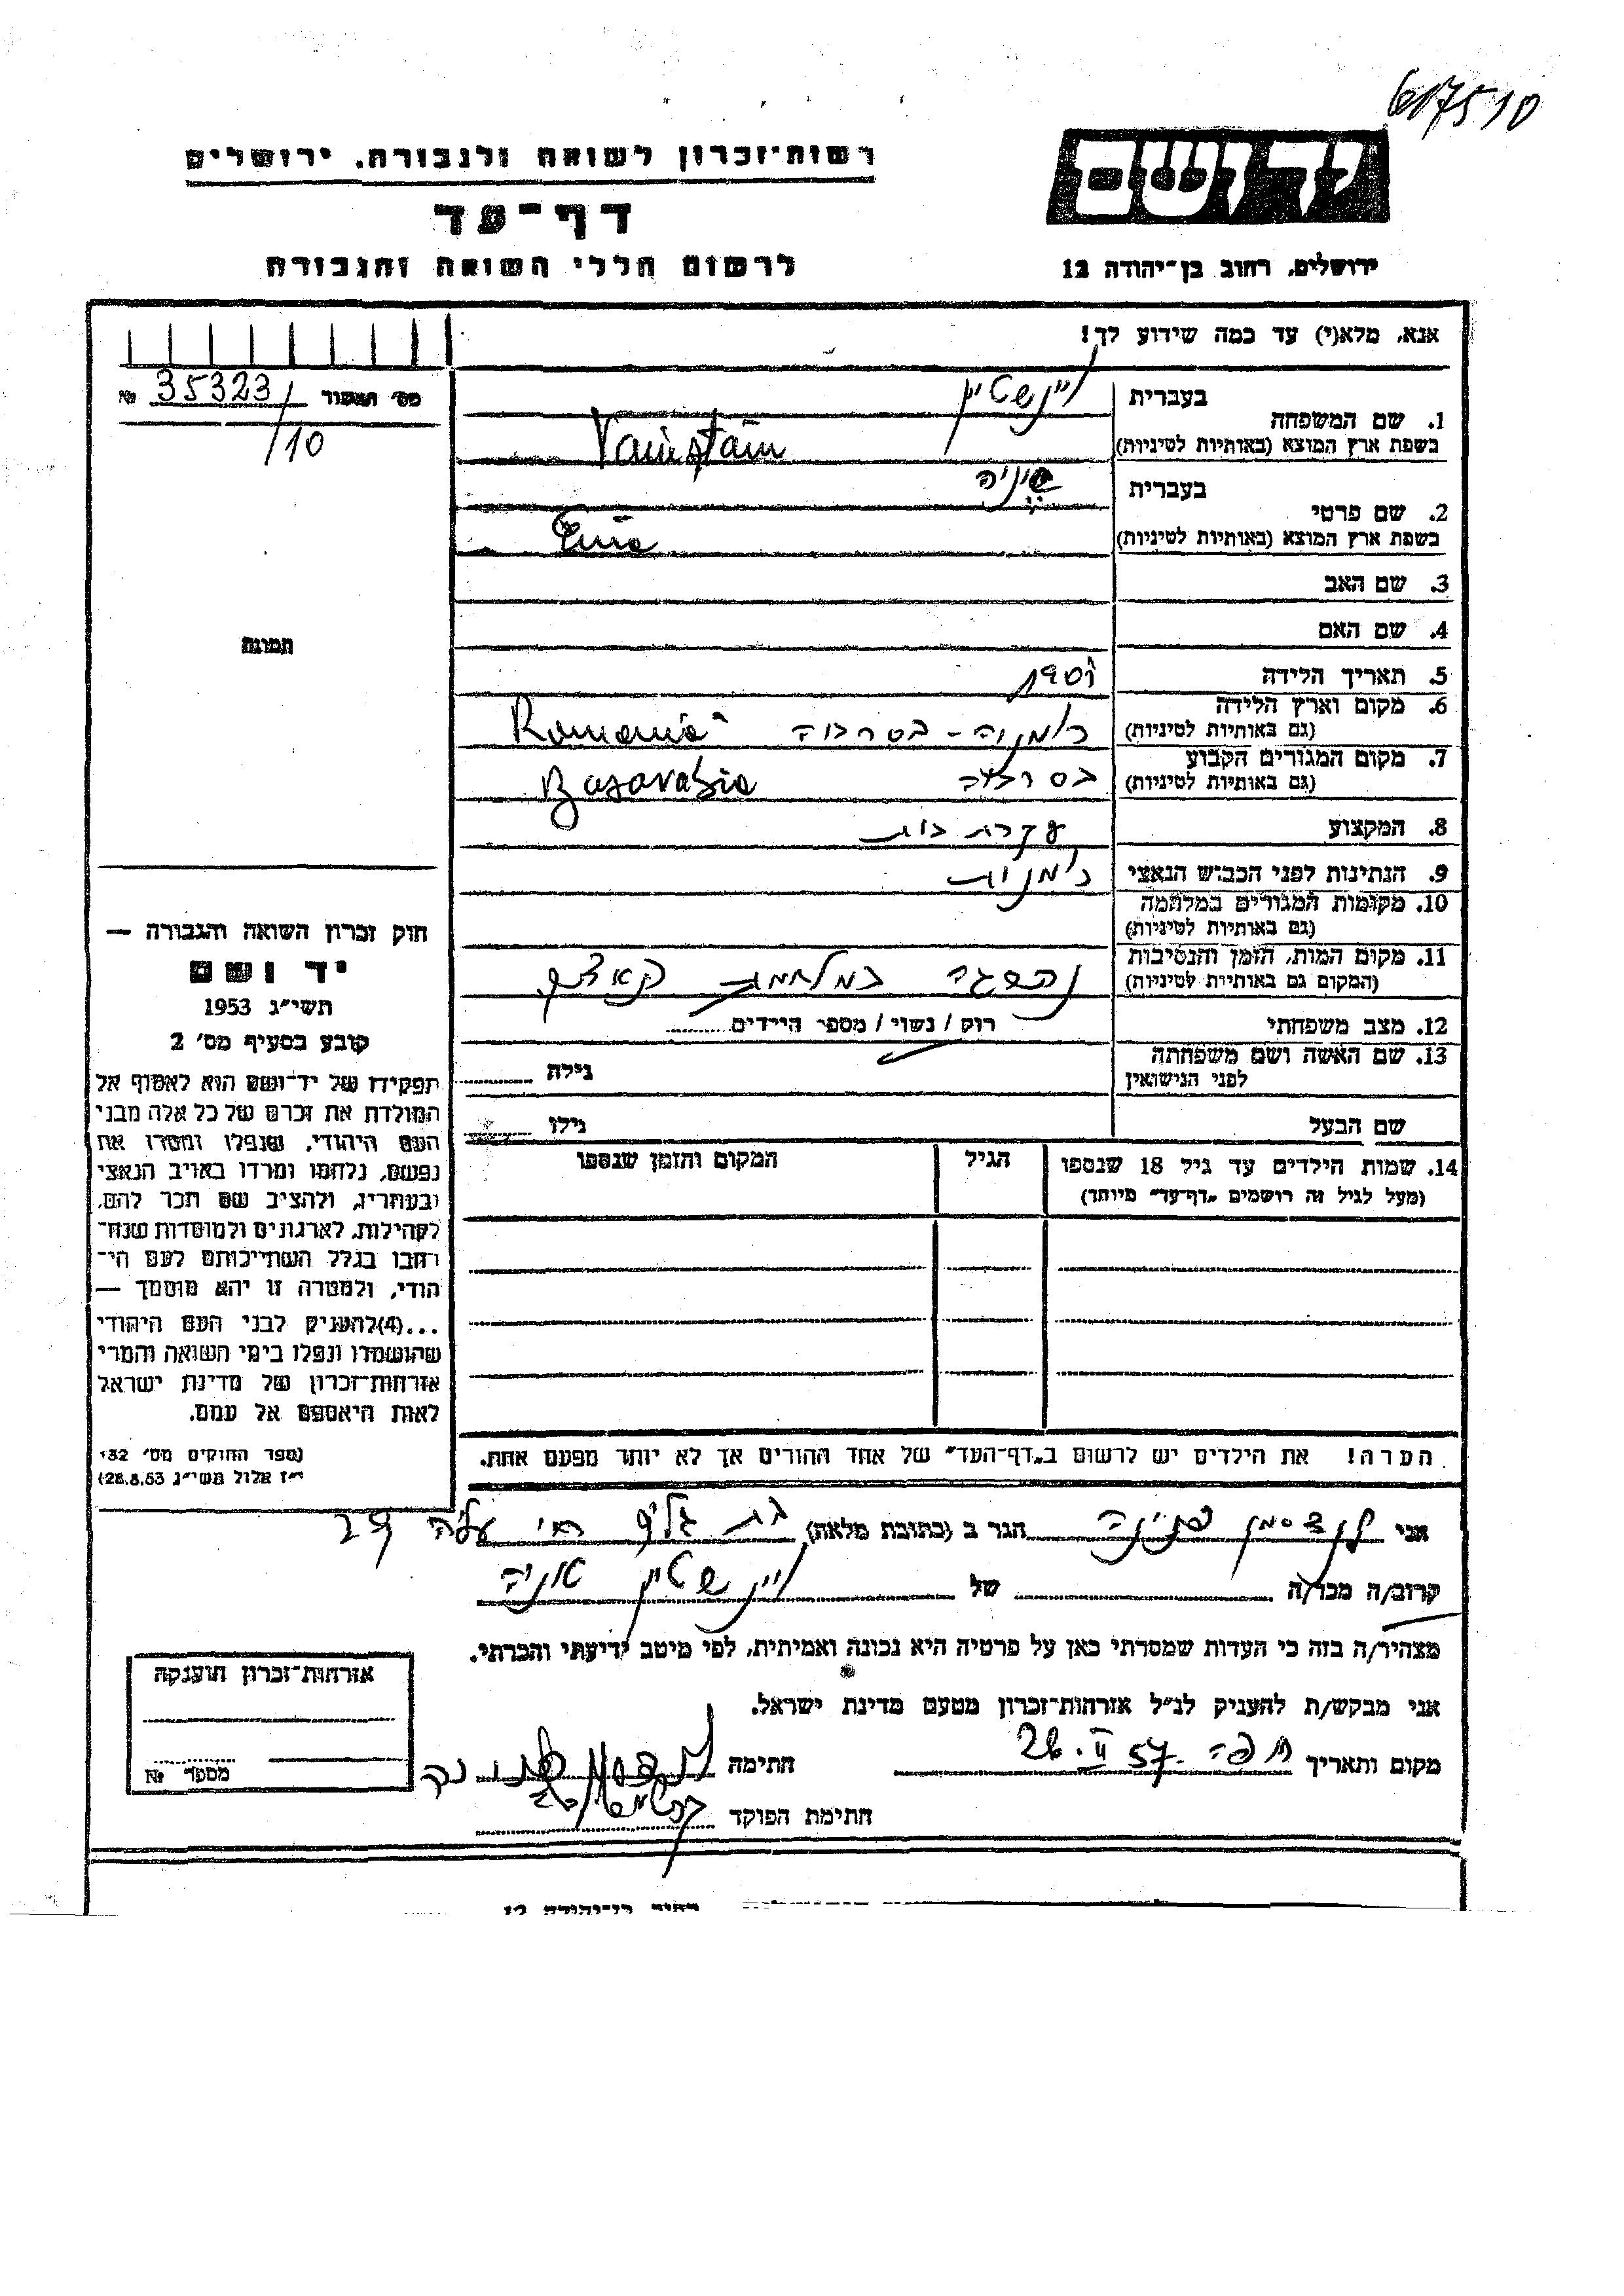 617510
רשות־זכרון לשואה ולגבורה, ירושלים
דף־עד
לרשום חללי השואה והגבורה
יד ושם
ירושלים, רחוב בן־יהודה 12
אנא, מלא(י) עד כמה שידוע לך!
מס' תעשור 35323/10 №
1. שם המשפחה
בעברית ויינשטיין
בשפת ארץ המוצא (באותיות לטיניות) Vainstain
2. שם פרטי
בעברית
בשפת ארץ המוצא (באותיות לטיניות)
3. שם האב
4. שם האם
תמונה
5. תאריך הלידה 1901
6. מקום וארץ הלידה
(גם באותיות לטיניות) רומניה - בסרביה Romania
7. מקום המגורים הקבוע
(גם באותיות לטיניות) בסרביה Basarabia
8. המקצוע עקרת בית
9. הנתינות לפני הכבוש הנאצי רומנית
10. מקומות המגורים במלחמה
(גם באותיות לטיניות)
11. מקום המות, הזמן והנסיבות
(המקום גם באותיות לטיניות) נהרגה במלחמת
12. מצב משפחתי רוק / נשוי / מספר הילדים
13. שם האשה ושם משפחתה
לפני הנישואין גילה
שם הבעל גילו
14. שמות הילדים עד גיל 18 שנספו
(מעל לגיל זה רושמים "דף־עד" מיוחד)
הגיל
המקום והזמן שנספו
חוק זכרון השואה והגבורה —
יד ושם
תשי"ג 1953
קובע בסעיף מס' 2
תפקידו של יד־ושם הוא לאסוף אל
המולדת את זכרם של כל אלה מבני
העם היהודי, שנפלו ומסרו את
נפשם, נלחמו ומרדו באויב הנאצי
ובעוזריו, ולהציב שם וזכר להם,
לקהילות, לארגונים ולמוסדות שנח־
רבו בגלל השתייכותם לעם הי־
הודי, ולמטרה זו יהא מוסמך —
...(4)להעניק לבני העם היהודי
שהושמדו ונפלו בימי השואה והמרי
אזרחות־זכרון של מדינת ישראל
לאות היאספם אל עמם.
(ספר החוקים מס' 132
י"ז אלול תשי"ג 28.8.53)
הערה! את הילדים יש לרשום ב"דף־העד" של אחד ההורים אך לא יותר מפעם אחת.
אני לנדסמן הגר ב (כתובת מלאה) בת גלים רח' עליה
קרוב/ה מכר/ה של ויינשטיין
מצהיר/ה בזה כי העדות שמסרתי כאן על פרטיה היא נכונה ואמיתית, לפי מיטב ידיעתי והכרתי.
אני מבקש/ת להעניק לנ"ל אזרחות־זכרון מטעם מדינת ישראל.
מקום ותאריך חיפה 26.II.57 חתימה
חתימת הפוקד
אזרחות־זכרון הוענקה
מספר №